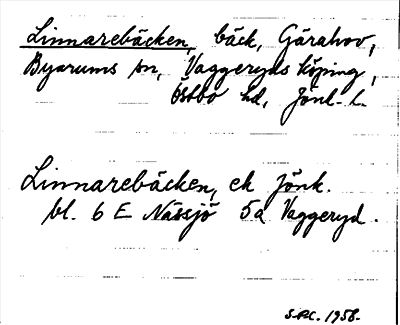 Linnarebäcken, bäck, Gärahov,
Byarums sn, Vaggeryds köping,
Östbo hd, Jönk. l.
Linnarebäcken, ek Jönk.
bl. 6 E Nässjö 5a Vaggeryd.
1958.